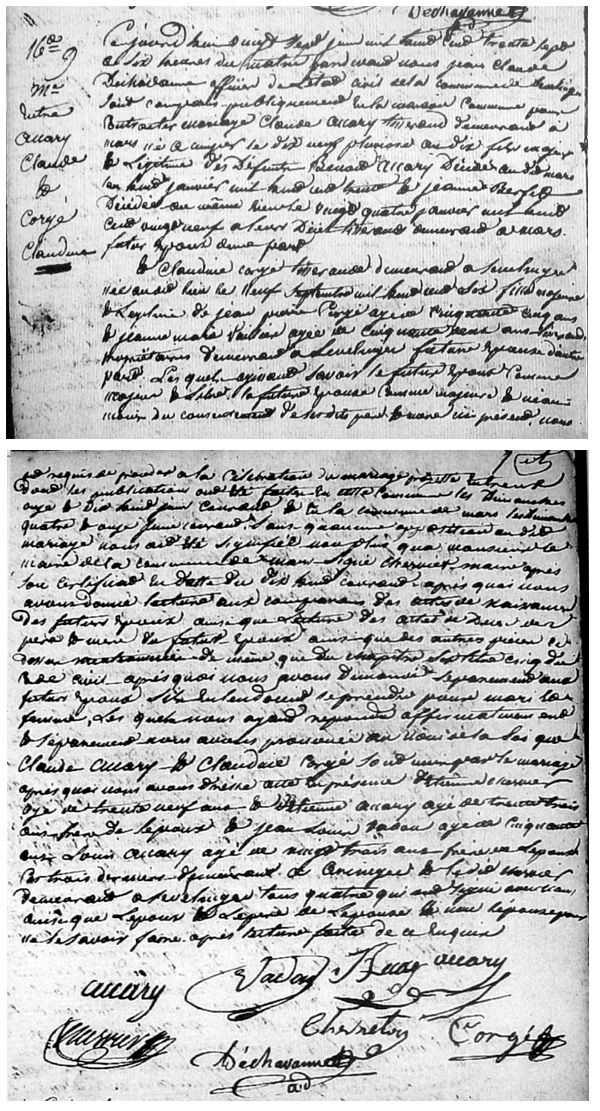 Déchavanne
ad
16e
9
Mre
Entre
Auary
Claude
&
Corgé
Claudine
Ce jourd hui vingt Sept juin mil huit Cent trente Sept
a Six heures du matin pardevant nous jean Claude
Dechavanne officier de L'état civil de la commune de
Sont comparus publiquement en la maison Commune pour
Contracter mariage Claude Auary tisserand demeurant à
mars né a le dix neuf pluviose an dix fils majeur
& Légitime des Défunts Benoit Auary Décédé au dit mars
Le janvier mil huit cent trente & jeanne
Décédée au même lieu le vingt quatre janvier mil huit
Cent vingt neuf a leurs Décès tisserand demeurant a mars.
futur Epoux d'une part
& Claudine Corgé tisserande demeurant a Sevelinges
née audit lieu le neuf Septembre mil huit cent dix fille majeure
& Légitime de jean pierre Corgé agé de Cinquante Cinq ans
& jeanne marie agée de Cinquante deux ans
propriétaires Demeurant a Sevelinges future Epouse d'autre
part. Les quels agissant Savoir le futur Epoux Comme
majeur & Libre, la future Epouse Comme majeure &
moins du consentement de Ses dits pere & mere ici présent, nous
ont requis de proceder a la Célébration du mariage projetté entr'eux
Dont les publications ont été faites en cette Commune les Dimanches
onze & Dix huit juin Courant & En la commune de mars les dimanches
quatre & onze juin courant Sans quaucune opposition au dit
mariage nous ait été Signifié non plus qua monsieur le
maire de la commune de mars Signé Chermet maire après
Son Certificat En datte du Dix huit courant, après quoi nous
avons donné lecture aux comparans Des actes de naissance
Des futurs Epoux, ainsi que Lecture des actes de Décès des
pere & mere du futur Epoux ainsi que des autres pièces
mentionnées de même que du chapitre Six titre cinq du
Code civil après quoi nous avons Demandé Séparement aux
futurs Epoux S'ils Entendent se prendre pour mari &
femme, Les quels nous ayant repondu affirmativement
& Séparement nous avons prononcé au nom de la Loi que
Claude Auary & Claudine Corgé Sont unis par le mariage
après quoi nous avons dressé acte En présence d'Etienne
agé de trente neuf ans & d'Etienne Auary agé de trente trois
ans frère de L'epoux & jean Louis Vadon agé de Cinquante
ans Louis Auary agé de vingt trois ans frère de L'epoux
Les trois derniers demeurant a & Le dit
demeurant a Sevelinges tous quatre qui ont Signé avec nous
ainsi que L'epoux & Le pere de L'epouse & non L'epouse pour
ne le Savoir faire après lecture faite de ce Enquis
Auary
Vadon
Auary
Cherreton
Corgé
Déchavanne
ad